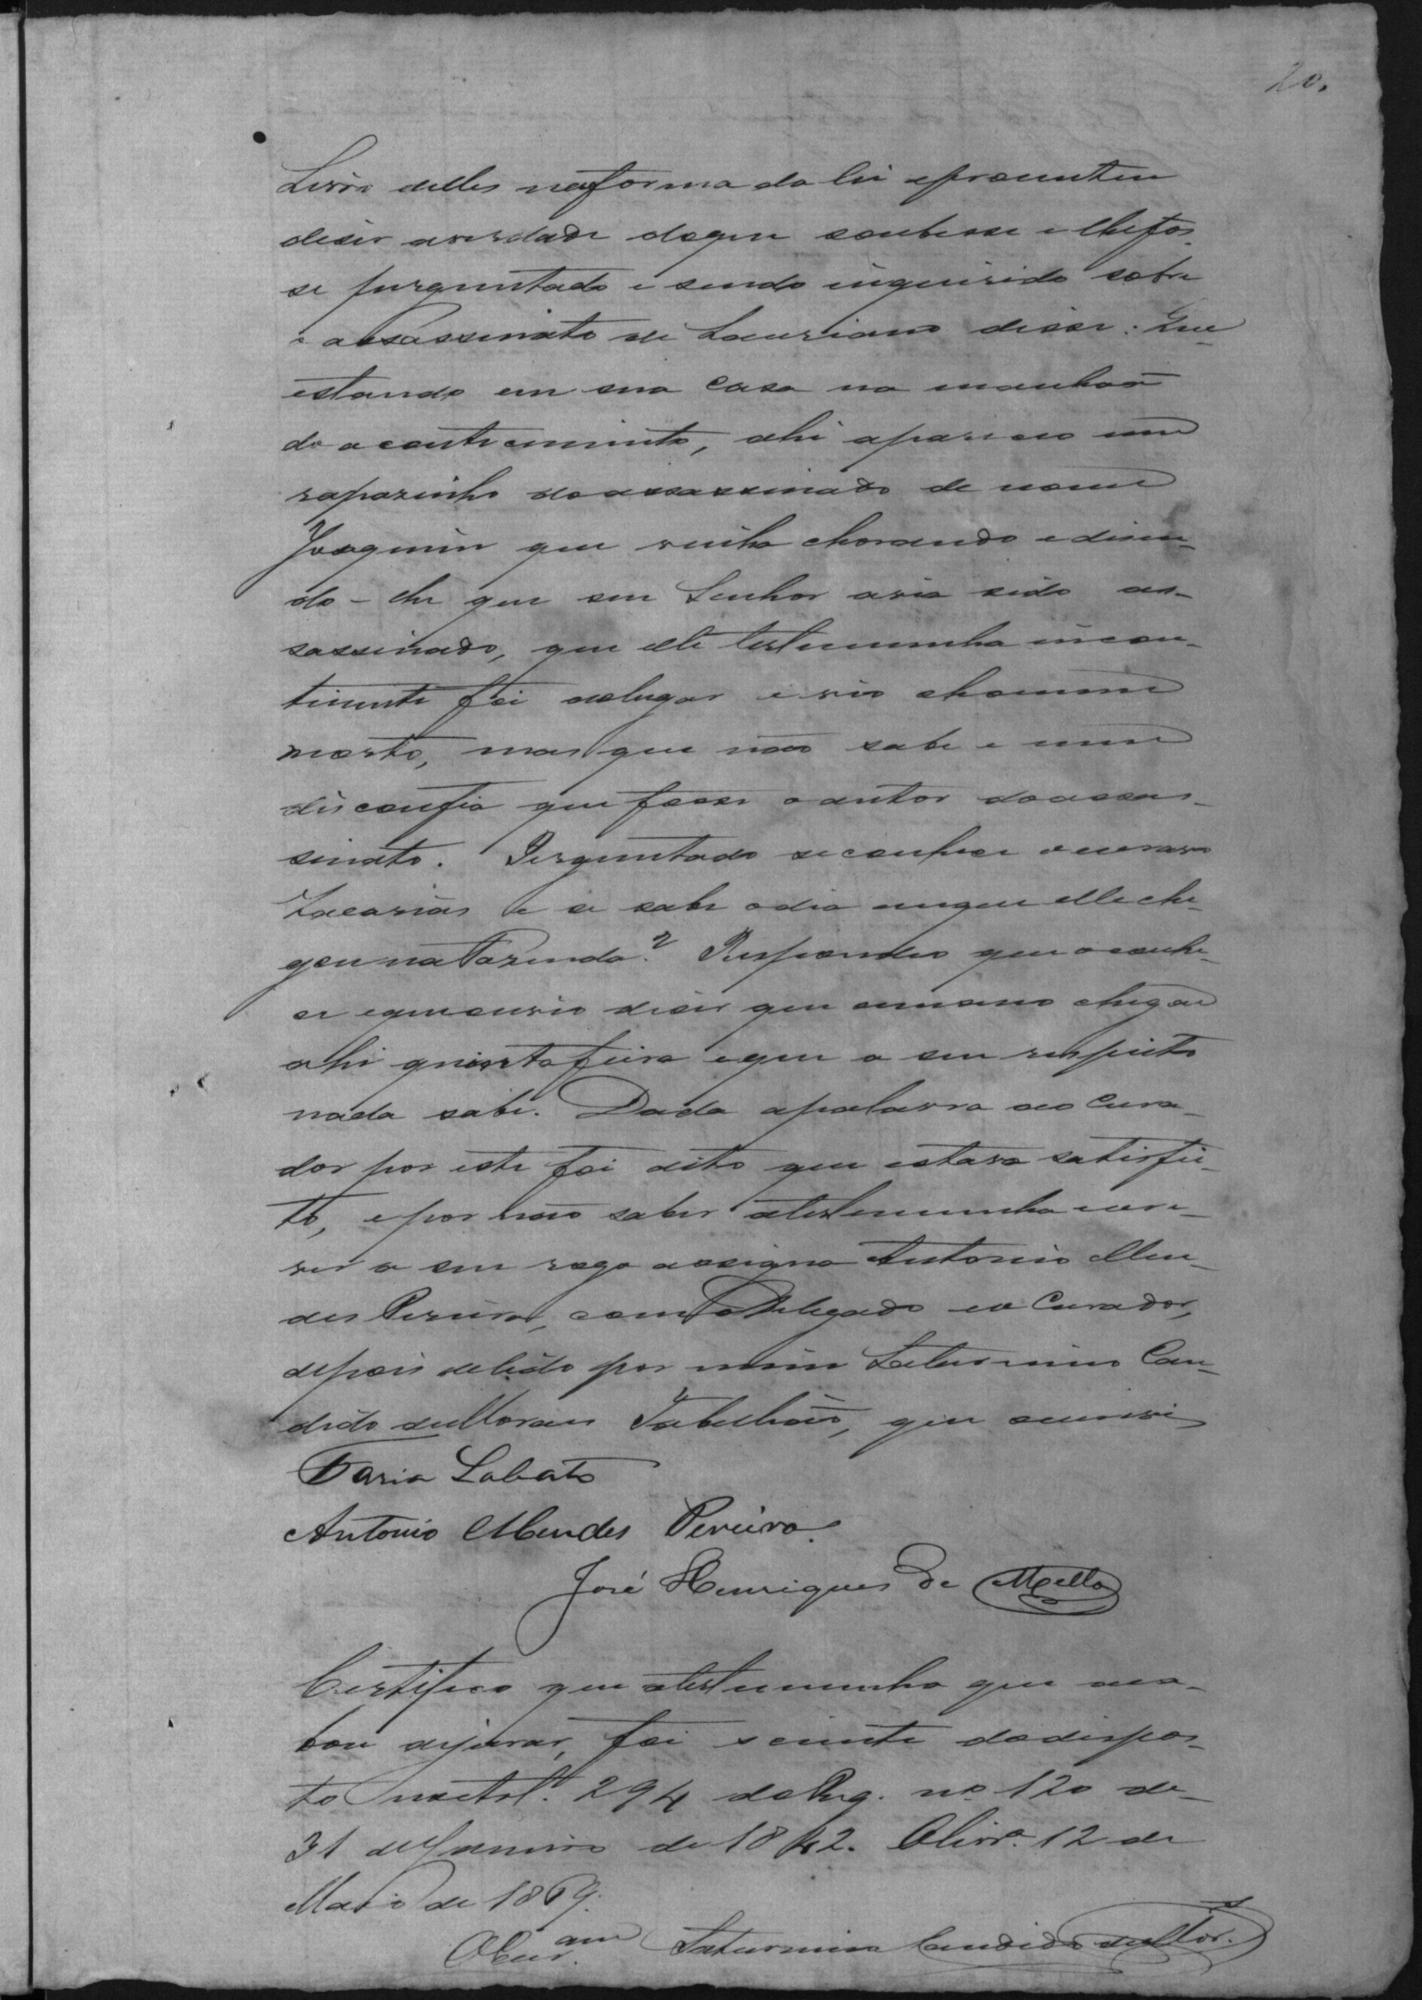 20.
Livro delles na forma da lei e prometteu
diser a verdade do que soubesse e lhe fos-
se perguntado e sendo inquirido sobre
o assassinato de Lauriano disse: Que
estando em sua casa na manhaã
do acontecimento, ahi apareceo um
raparinho do assassinado de nome
Joaquim que vinha chorando e disen-
do-lhe que seu Senhor avia sido as-
sassinado, que elle testemunha incon-
tinente foi ao lugar e vio o homem
morto, mas que não sabe e nem
disconfia quem fosse o autor do assas-
sinato. Perguntado se conhece o escravo
Zacarias e se sabe o dia em que elle che-
gou na Fazenda? Respondeo que o conhe-
ce e que ouvio diser que o mesmo chegou
ahi quinta feira e que a seu respeito
nada sabe. Dada a palavra ao Cura-
dor por este foi dito que estava satisfei-
to, e por não saber a testemunha escre-
ver a seu rogo assigna Antonio Men-
des Pereira, com o Delegado e o Curador,
depois de lido por mim Saturnino Can-
dido de Moraes Tabelhão, que escrevi
Faria Lobato
Antonio Mendes Pereira.
José Henriques de Mello
Certifico que a testemunha que aca-
bou de jurar, foi sciente do dispos-
to no art. 294 do Reg. nº 120 de
31 de Janeiro de 1842. Olivrª 12 de
Maio de 1869.
O Escr.am Saturnino Candido de Mor.s